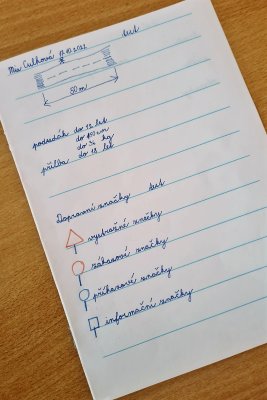 Mia Culková 17.10.2022
50 m
podsedák do 12 let
do 150 cm
do 36 kg
přilba do 18 let
Dopravní značky
výstražné značky
zákazové značky
příkazové značky
informační značky